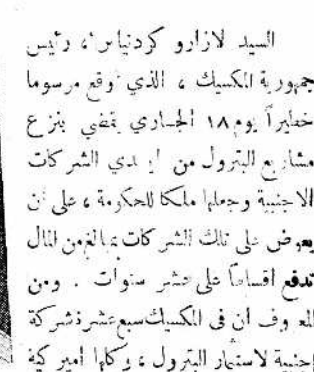 السيد لازارو كردنياس ، رئيس
جمهورية المكسيك ، الذي وقع مرسوما
خطيراً يوم ١٨ الجاري يقضي بنزع
مشاريع البترول من ايدي الشركات
الاجنبية وجعلها ملكا للحكومة ، على ان
يعوض على تلك الشركات بمبالغ من المال
تدفع اقساطاً على عشر سنوات . ومن
المعروف ان في المكسيك سبع عشرة شركة
اجنبية لاستثمار البترول ، وكلها اميركية